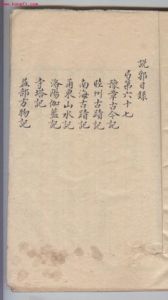 www.kongfz.com
説郛目錄
弓第六十七
豫章古今記
睦州古蹟記
南海古蹟記
甬東山水記
洛陽伽藍記
寺塔記
益部方物記